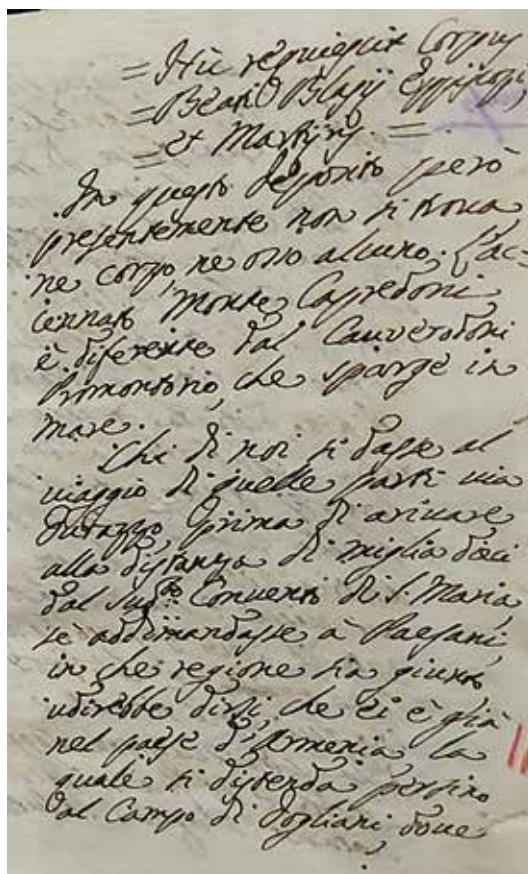 = Hic requiescit Corpus
= Beati Blasij Episcopi,
= et Martiris. =
In questo deposito però
presentemente non si troua,
ne corpo, ne osso alcuno. L'ac=
cennato Monte Capredoni
è diferente dal Cauverodoni
Promontorio, che sparge in
mare.
Chi di noi si dasse al
uiaggio di quelle parti uia
Durazzo, prima di ariuare
alla distanza di miglia dieci
dal sud.to Conuento di S. Maria,
se addimandasse à Paesani,
in che regione sia giunto
udirebbe dirsi, che ei è già
nel paese d'Armenia, la
quale si distenda persino
dal Campo di Dogliani, doue